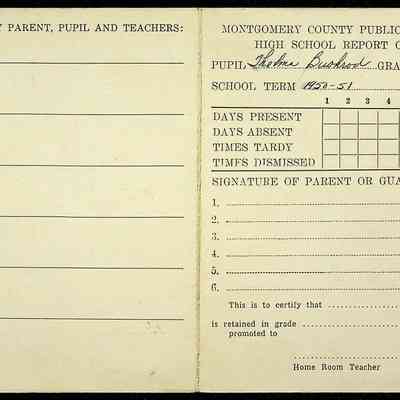 Y PARENT, PUPIL AND TEACHERS:
MONTGOMERY COUNTY PUBLIC
HIGH SCHOOL REPORT C
PUPIL Thelma Bushrod GRA
SCHOOL TERM 1950-51
1 2 3 4
DAYS PRESENT
DAYS ABSENT
TIMES TARDY
TIMES DISMISSED
SIGNATURE OF PARENT OR GUA
1.
2.
3.
4.
5.
6.
This is to certify that
is retained in grade
promoted to
Home Room Teacher